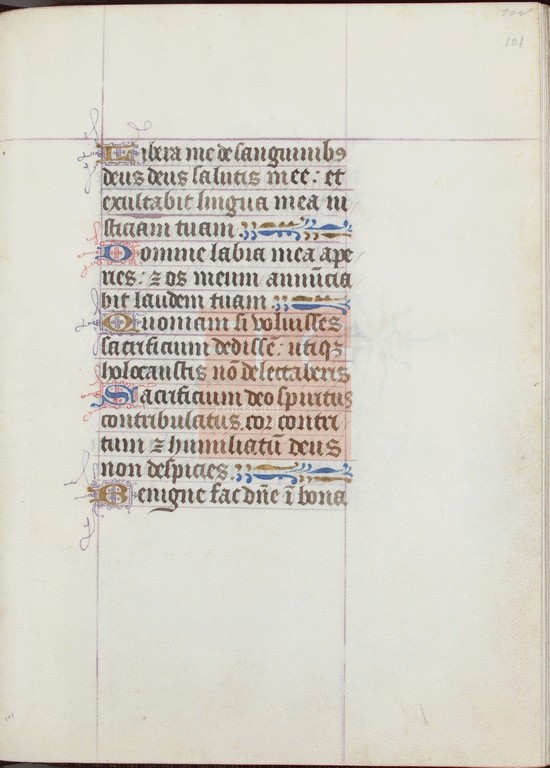 101
Libera me de sanguinibꝰ
deus deus salutis mee: et
exultabit lingua mea iu
sticiam tuam
Domine labia mea ape
ries: ⁊ os meum annūcia
bit laudem tuam
Quoniam si voluisses
sacrificium dedissē: utiqꝫ
holocaustis nō delectaberis
Sacrificium deo spiritus
contribulatus. cor contri
tum ⁊ humiliatū deus
non despicies
Benigne fac dn̄e ī bona